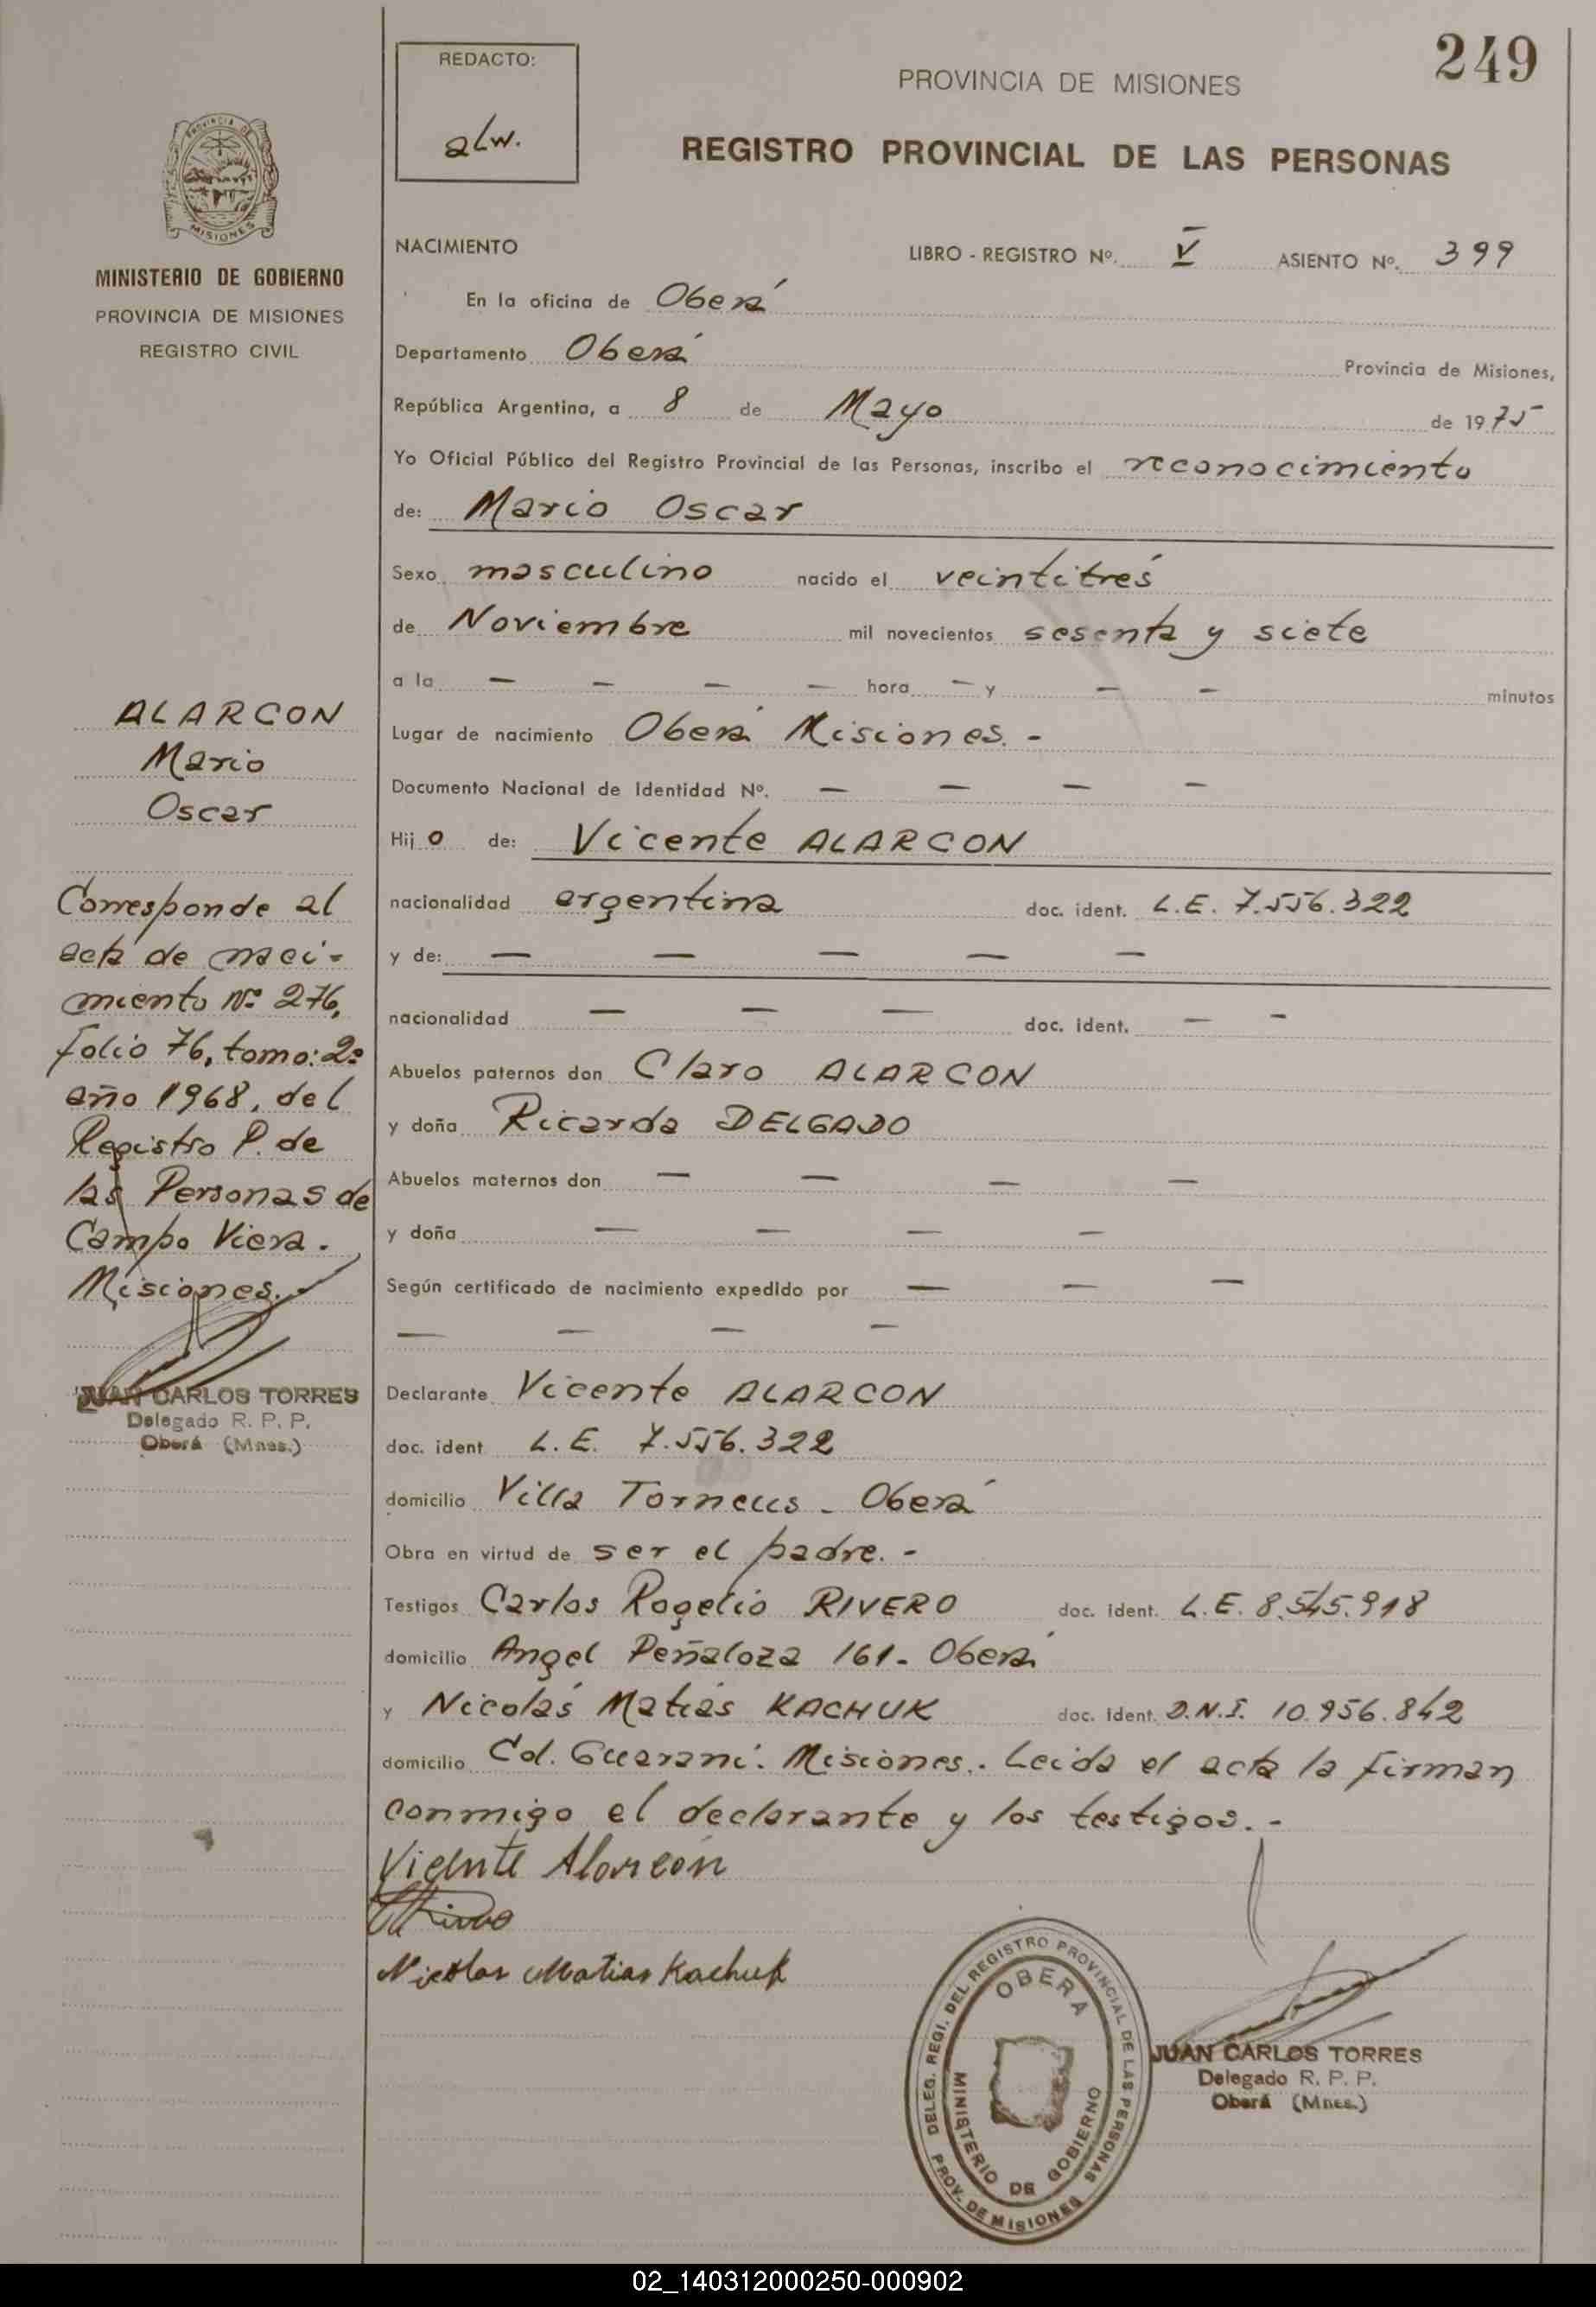 249
REDACTO:
alw.
PROVINCIA DE MISIONES
REGISTRO PROVINCIAL DE LAS PERSONAS
PROVINCIA DE
MISIONES
MINISTERIO DE GOBIERNO
PROVINCIA DE MISIONES
REGISTRO CIVIL
NACIMIENTO LIBRO - REGISTRO Nº. V ASIENTO Nº. 399
En la oficina de Oberá
Departamento Oberá Provincia de Misiones,
República Argentina, a 8 de Mayo de 1975
Yo Oficial Público del Registro Provincial de las Personas, inscribo el reconocimiento
de: Mario Oscar
Sexo masculino nacido el veintitrés
de Noviembre mil novecientos sesenta y siete
a la — — — — hora — y — — minutos
Lugar de nacimiento Oberá Misiones. -
Documento Nacional de Identidad Nº. — — — —
Hijo de: Vicente ALARCON
nacionalidad argentina doc. ident. L.E. 7.556.322
y de: — — — — —
nacionalidad — — — doc. ident. — -
Abuelos paternos don Claro ALARCON
y doña Ricarda DELGADO
Abuelos maternos don — — — —
y doña — — — —
Según certificado de nacimiento expedido por — — —
— — — —
Declarante Vicente ALARCON
doc. ident L.E. 7.556.322
domicilio Villa Torneus - Oberá
Obra en virtud de ser el padre. -
Testigos Carlos Rogelio RIVERO doc. ident. L.E. 8.545.918
domicilio Angel Peñaloza 161 - Oberá
y Nicolás Matías KACHUK doc. ident. D.N.I. 10.956.842
domicilio Col. Guaraní. Misiones.. Leida el acta la firman
conmigo el declarante y los testigos. -
Vicente Alarcón
Nicolas Matias Kachuk
ALARCON
Mario
Oscar
Corresponde al
acta de naci-
miento Nº 276,
folio 76, tomo: 2º
año 1968, del
Registro P. de
las Personas de
Campo Viera.
Misiones. -
JUAN CARLOS TORRES
Delegado R. P. P.
Oberá (Mnes.)
DELEG. REGI. DEL REGISTRO PROVINCIAL DE LAS PERSONAS
OBERA
MINISTERIO DE GOBIERNO
PROV. DE MISIONES
JUAN CARLOS TORRES
Delegado R. P. P.
Oberá (Mnes.)
02_140312000250-000902